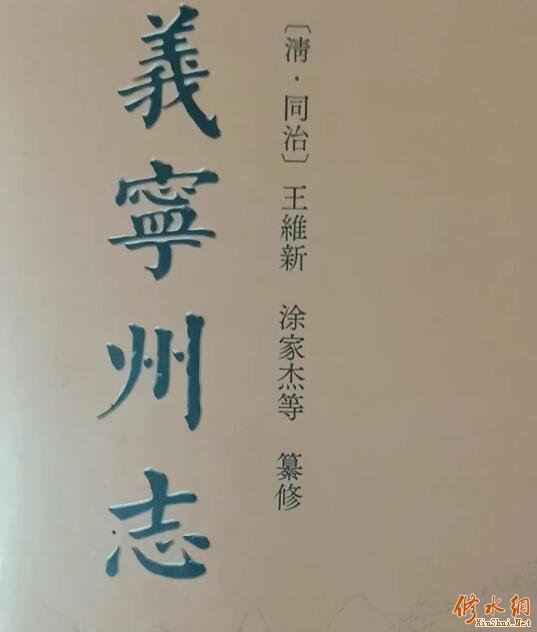 義寧州志
〔清·同治〕王維新 涂家杰等 纂修
修水網
XiuShui.Net